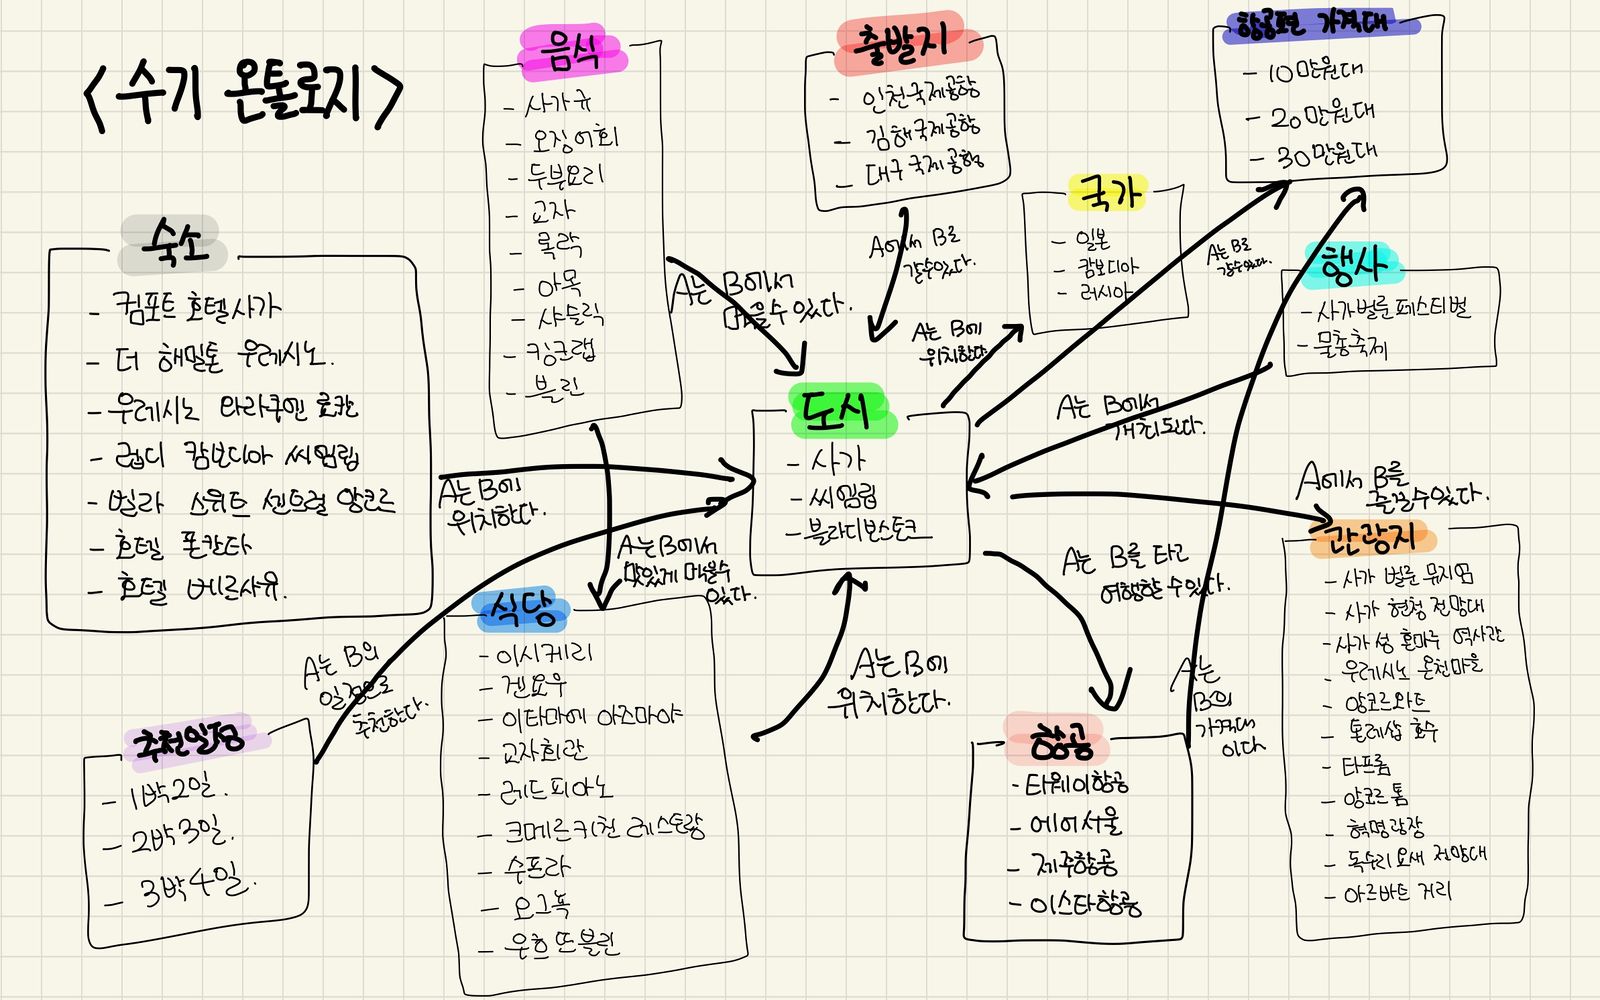 <수기 온톨로지>
음식
- 사가규
- 오징어회
- 두부요리
- 교자
- 록락
- 아목
- 샤슬릭
- 킹크랩
- 블린
출발지
- 인천국제공항
- 김해국제공항
- 대구국제공항
항공편 가격대
- 10만원대
- 20만원대
- 30만원대
국가
- 일본
- 캄보디아
- 러시아
행사
- 사가벌룬페스티벌
- 물총축제
숙소
- 컴포트 호텔사가
- 더 해밀톤 우레시노.
- 우레시노 와라쿠엔 료칸
- 럽디 캄보디아 씨엠립
- 빌라 스위트 센트럴 앙코르
- 호텔 폰칸타
- 호텔 베르사유.
A는 B에서
먹을수 있다.
A에서 B로
갈수있다.
A는 B에
위치한다.
A는 B로
갈수있다.
A는 B에서
개최된다.
도시
- 사가
- 씨엠립
- 블라디보스토크
A는 B에
위치한다.
A는 B에서
맛있게 먹을수
있다.
A에서 B를
즐길수있다.
A는 B를 타고
여행할 수있다.
A는 B의
일정으로
추천한다.
A는 B에
위치한다.
A는
B의
가격대
이다
추천일정
- 1박2일.
- 2박3일.
- 3박4일.
식당
- 이시케리
- 겐요우
- 이타마에 아즈마야
- 교자회관
- 레드피아노
- 크메르키친 레스토랑
- 수프라
- 오그뇩
- 우흐 뜨블린
항공
- 타웨이항공
- 에어서울
- 제주항공
- 이스타항공
간광지
- 사가 벌룬 뮤지엄
- 사가 현청 전망대
- 사가성 혼마루 역사관
- 우레시노 온천마을
- 앙코르와트
- 톤레삽 호수
- 타프롬
- 앙코르톰
- 혁명광장
- 독수리요새 전망대
- 아르바트 거리